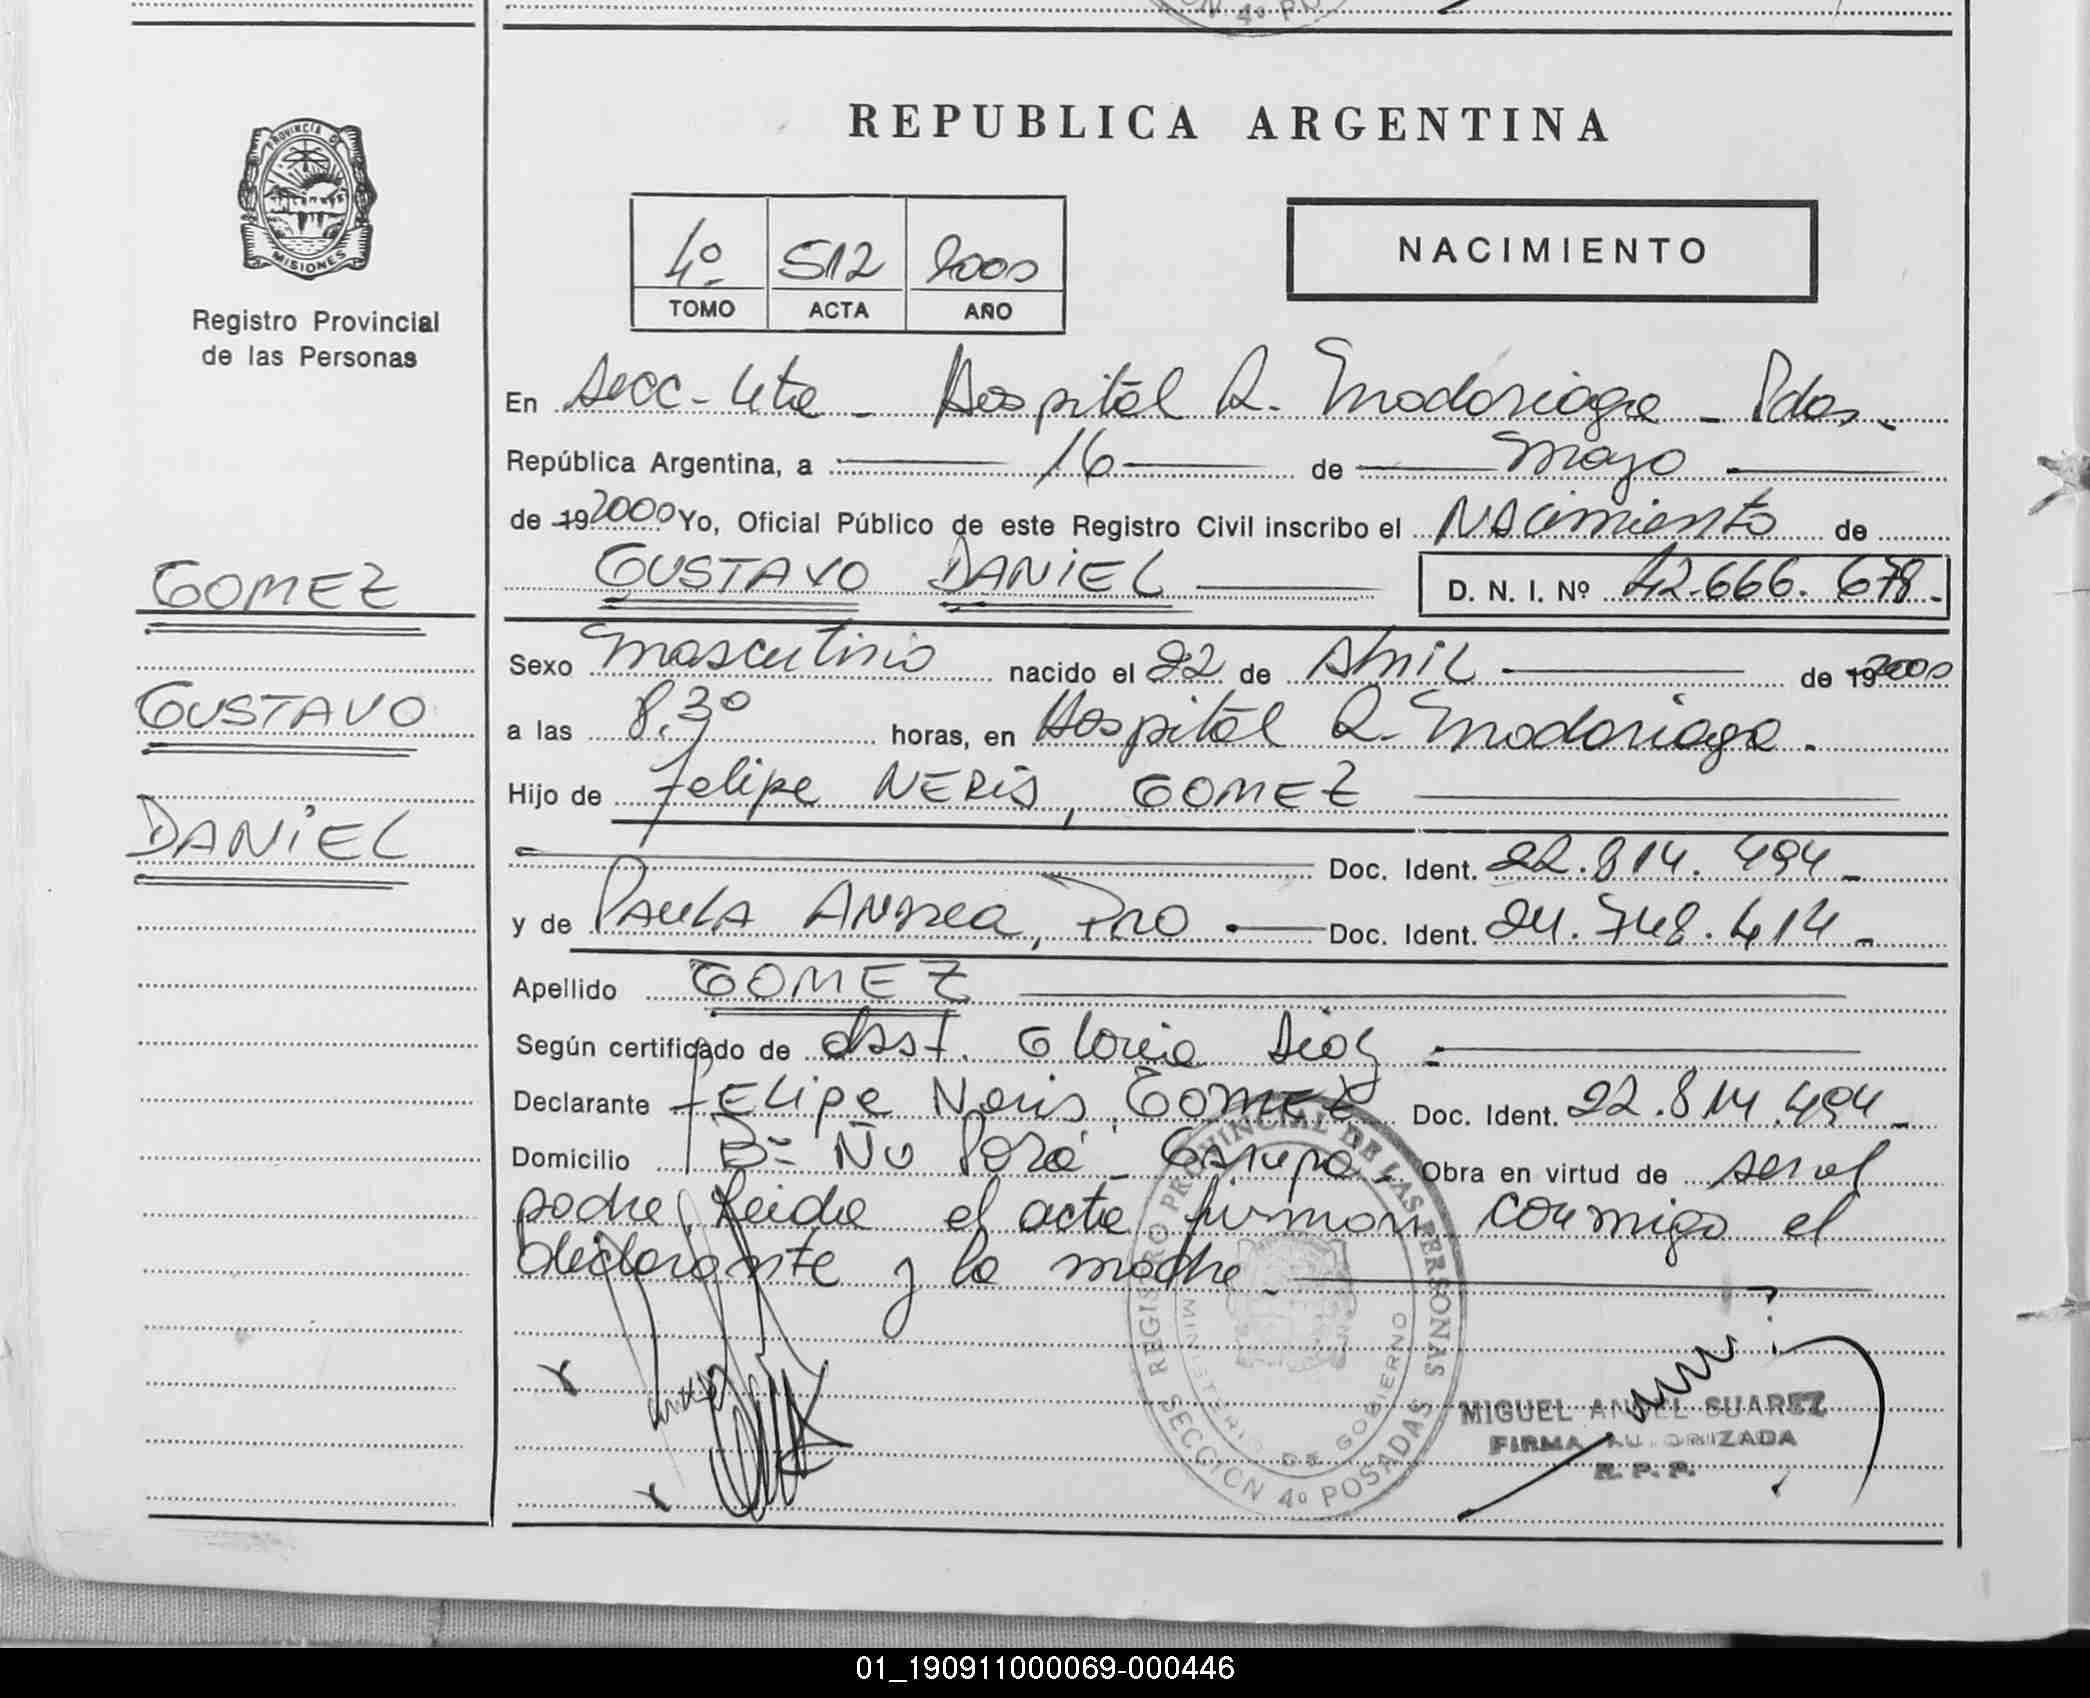 REPUBLICA ARGENTINA
PROVINCIA DE
MISIONES
Registro Provincial
de las Personas
4º 512 2000
TOMO ACTA AÑO
NACIMIENTO
En Secc-4ta - Hospital R. Madariaga - Pdas.
República Argentina, a 16 de mayo
de 19 2000 Yo, Oficial Público de este Registro Civil inscribo el Nacimiento de
GUSTAVO DANIEL D. N. I. Nº 42.666.678.-
GOMEZ
GUSTAVO
DANIEL
Sexo masculino nacido el 22 de Abril de 19 2000
a las 8.30 horas, en Hospital R. Madariaga.
Hijo de Felipe NERIS, GOMEZ
Doc. Ident. 22.814.494-
y de PAULA ANDREA, PRO Doc. Ident. 24.748.414-
Apellido GOMEZ
Según certificado de Obst. Gloria
Declarante FELIPE Neris, GOMEZ Doc. Ident. 22.814.494-
Domicilio Bº Ñu Porá - Garupá. Obra en virtud de ser el
padre, Leida el acta firman conmigo el
declarante y la madre
REGISTRO PROVINCIAL DE LAS PERSONAS
MINISTERIO DE GOBIERNO
SECCION 4º POSADAS
MIGUEL ANGEL SUAREZ
FIRMA AUTORIZADA
R. P. P.
01_190911000069-000446